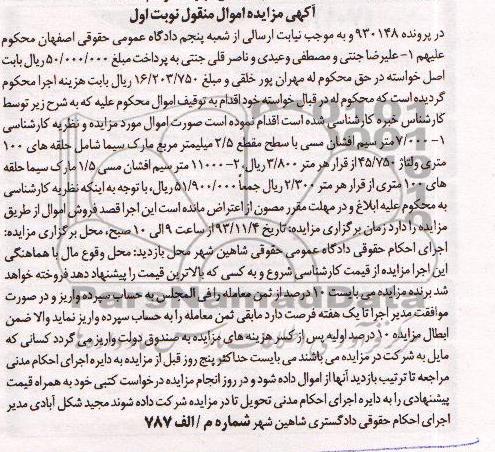 آگهی مزایده اموال منقول نوبت اول
در پرونده ۹۳۰۱۴۸ و به موجب نیابت ارسالی از شعبه پنجم دادگاه عمومی حقوقی اصفهان محکوم
علیهم ۱- علیرضا جنتی و مصطفی وعیدی و ناصر قلی جنتی به پرداخت مبلغ ۵۰/۰۰۰/۰۰۰ ریال بابت
اصل خواسته در حق محکوم له مهران پور خلقی و مبلغ ۱۶/۲۰۳/۷۵۰ ریال بابت هزینه اجرا محکوم
گردیده است که محکوم له در قبال خواسته خود اقدام به توقیف اموال محکوم علیه که به شرح زیر توسط
کارشناس خبره کارشناسی شده است اقدام نموده است صورت اموال مورد مزایده و نظریه کارشناسی
۱- ۷/۰۰۰ متر سیم افشان مسی با سطح مقطع ۲/۵ میلیمتر مربع مارک سیما شامل حلقه های ۱۰۰
متری ولتاژ ۴۵/۷۵۰ از قرار هر متر ۳/۸۰۰ ریال ۲- ۱۱۰۰۰ متر سیم افشان مسی ۱/۵ مارک سیما حلقه
های ۱۰۰ متری از قرار هر متر ۲/۳۰۰ ریال جمعاً ۵۱/۹۰۰/۰۰۰ ریال، با توجه به اینکه نظریه کارشناسی
به محکوم علیه ابلاغ و در مهلت مقرر مصون از اعتراض مانده است این اجرا قصد فروش اموال از طریق
مزایده را دارد زمان برگزاری مزایده: تاریخ ۹۳/۱۱/۴ از ساعت ۹ الی ۱۰ صبح، محل برگزاری مزایده:
اجرای احکام حقوقی دادگاه عمومی حقوقی شاهین شهر محل بازدید: محل وقوع مال با هماهنگی
این اجرا مزایده از قیمت کارشناسی شروع و به کسی که بالاترین قیمت را پیشنهاد دهد فروخته خواهد
شد برنده مزایده می بایست ۱۰ درصد از ثمن معامله را فی المجلس به حساب سپرده واریز و در صورت
موافقت مدیر اجرا تا یک هفته فرصت دارد مابقی ثمن معامله را به حساب سپرده واریز نماید والا ضمن
ابطال مزایده ۱۰ درصد اولیه پس از کسر هزینه های مزایده به صندوق دولت واریز می گردد کسانی که
مایل به شرکت در مزایده می باشند می بایست حداکثر پنج روز قبل از مزایده به دایره اجرای احکام مدنی
مراجعه تا ترتیب بازدید آنها از اموال داده شود و در روز انجام مزایده درخواست کتبی خود به همراه قیمت
پیشنهادی را به دایره اجرای احکام مدنی تحویل تا در مزایده شرکت داده شوند مجید شکل آبادی مدیر
اجرای احکام حقوقی دادگستری شاهین شهر شماره م / الف ۷۸۷